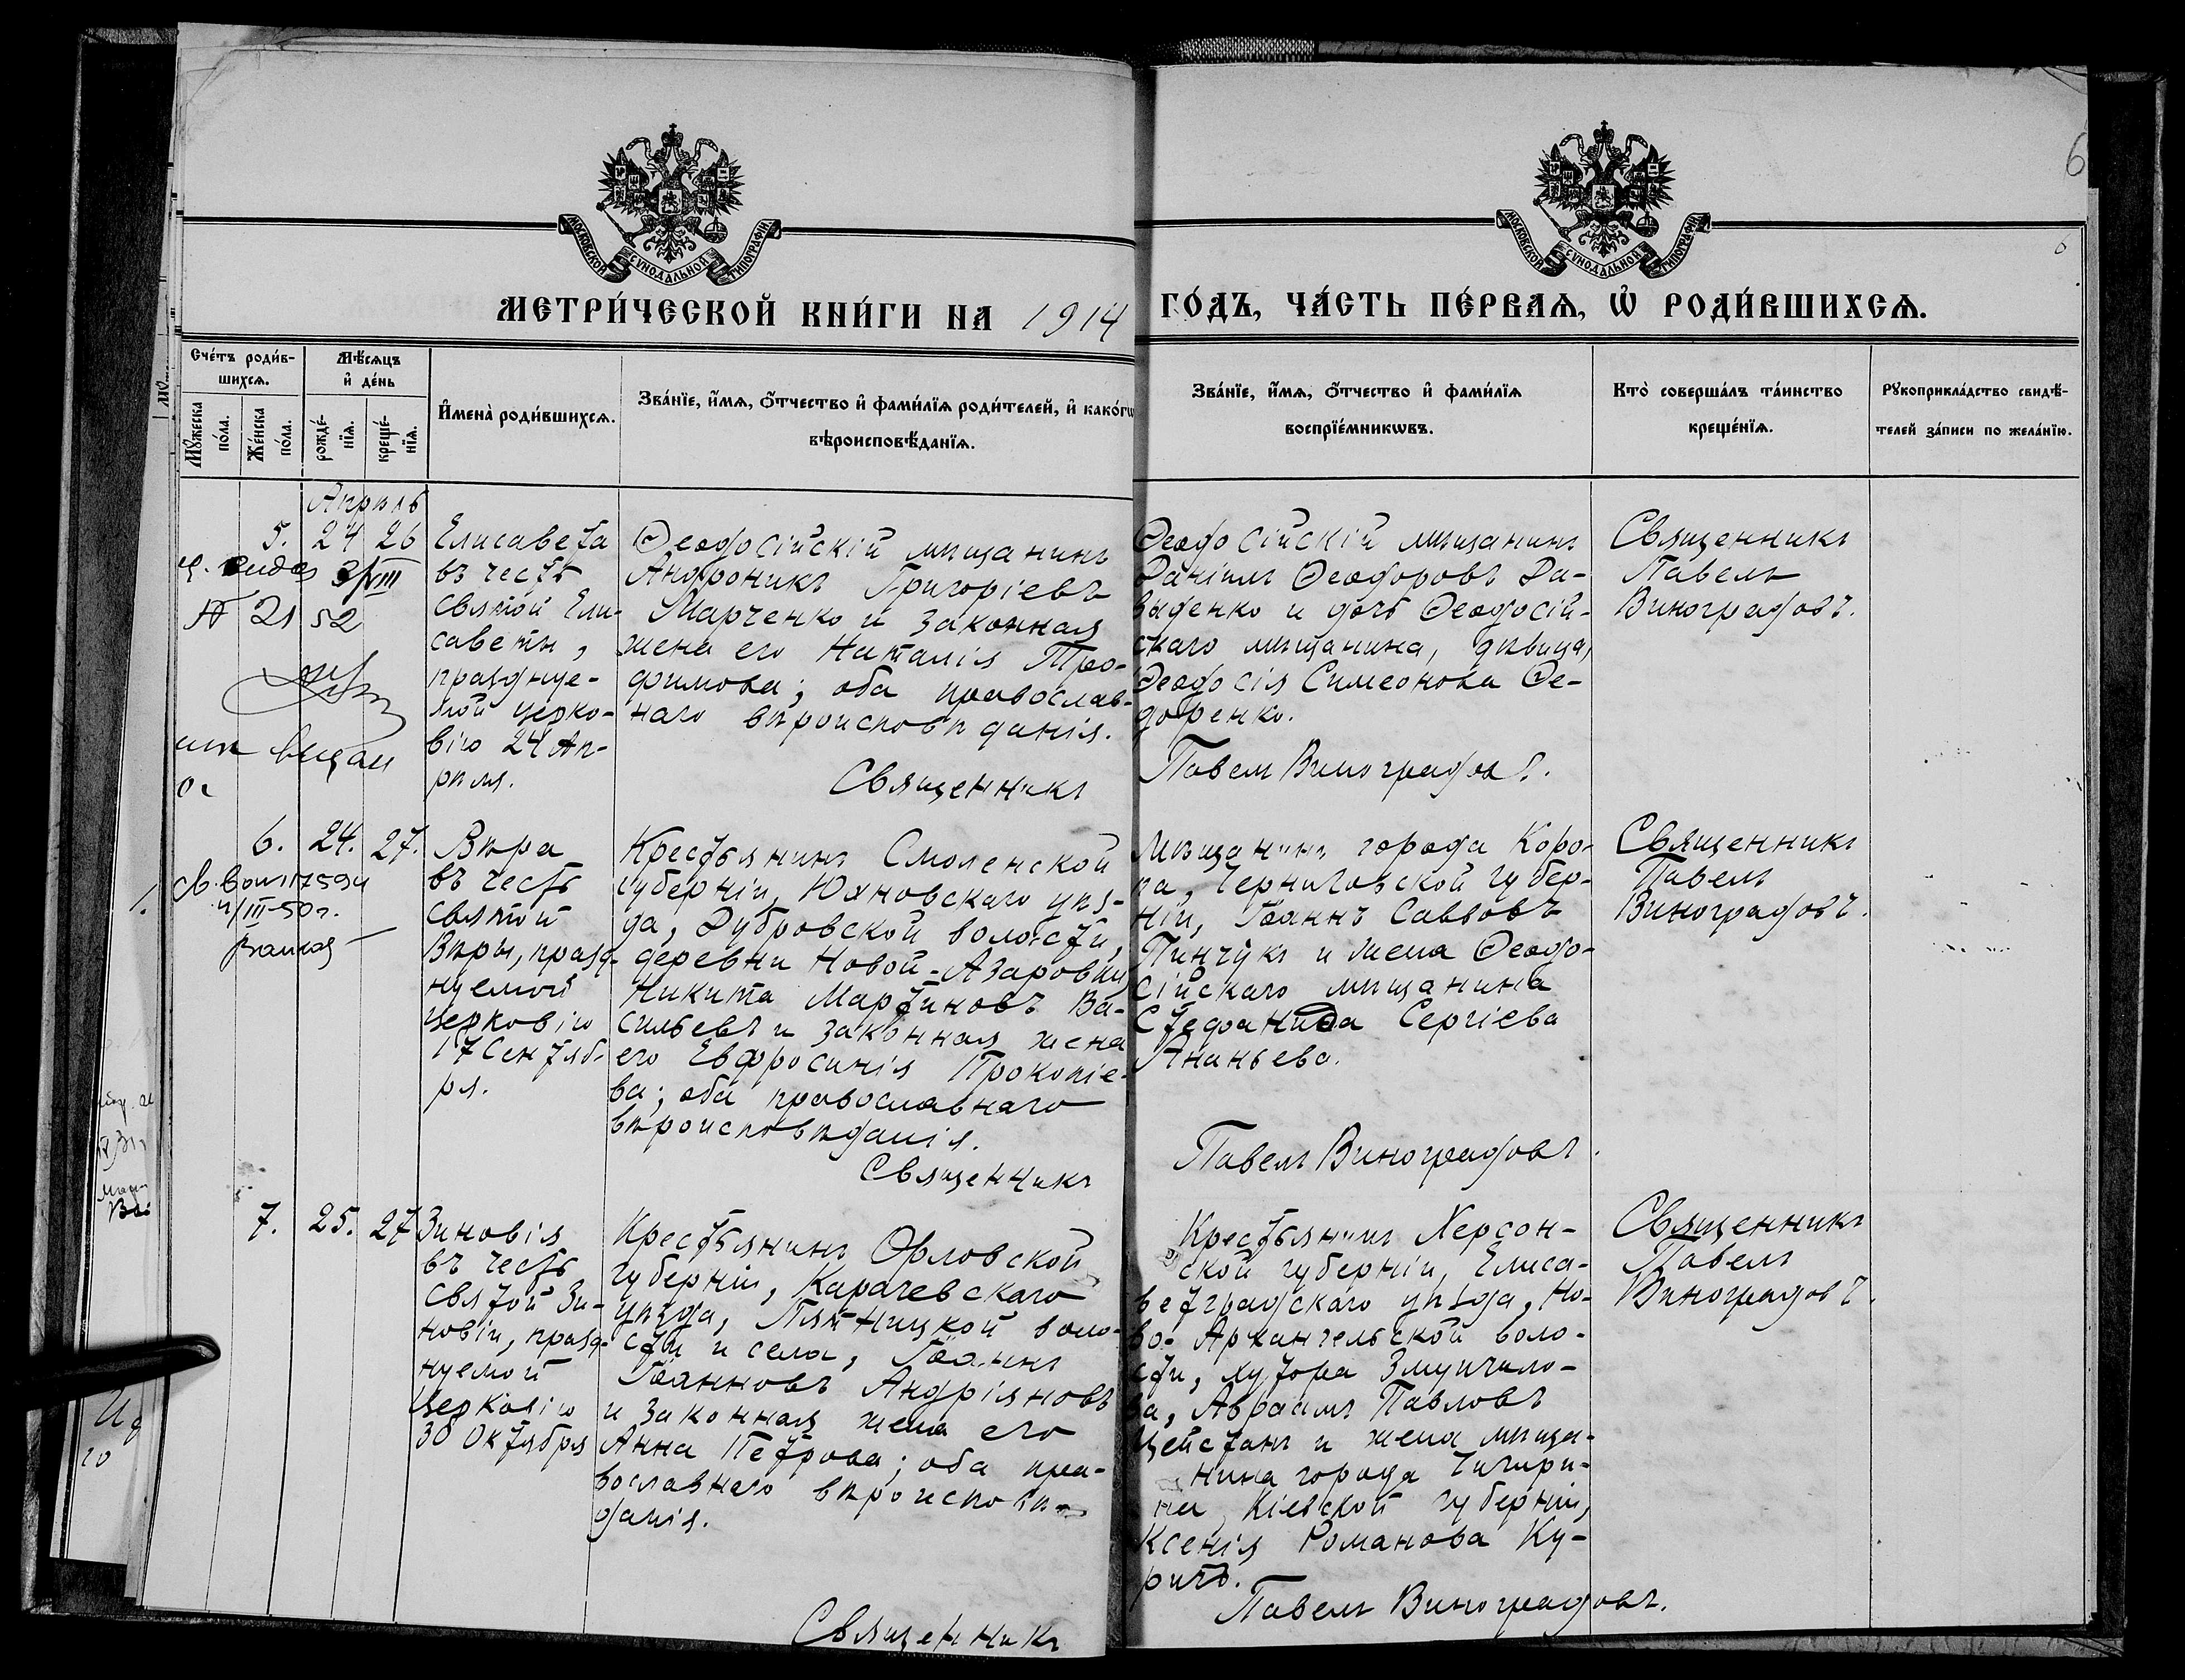 6
6
МОСКОВСКОЙ СѴНОДАЛЬНОЙ ТИПОГРАФІИ
МОСКОВСКОЙ СѴНОДАЛЬНОЙ ТИПОГРАФІИ
МЕТРИ́ЧЕСКОЙ КНИ́ГИ НА 1914 ГО́ДЪ, ЧА́СТЬ ПЕ́РВАѦ, Ѽ РОДИ́ВШИХСѦ.
Сче́тъ роди́в-
шихсѧ.
Мꙋ́жеска
по́ла.
Же́нска
по́ла.
Мѣ́сѧцъ
и҆ де́нь
рожде́-
нїѧ.
креще́-
нїѧ.
И҆мена̀ роди́вшихсѧ.
Зва́нїе, и҆́мѧ, ѻ҆́тчество и҆ фами́лїѧ роди́телей, и҆ како́гѡ
вѣроисповѣ́данїѧ.
Зва́нїе, и҆́мѧ, ѻ҆́тчество и҆ фами́лїѧ
воспрїе́мникѡвъ.
Кто̀ соверша́лъ та́инство
креще́нїѧ.
Рꙋкоприкла́дство свидѣ́-
телей за́писи по жела́нїю.
Апрѣль
5. 24 26
3/VIII
№ 21 52
Елисавета
въ честь
святой Ели-
саветы,
празднуе-
мой церко-
вію 24 Ап-
рѣля.
Ѳеодосійскій мѣщанинъ
Андроникъ Григоріевъ
Марченко и законная
жена его Наталія Тро-
фимова; оба православ-
наго вѣроисповѣданія.
Священникъ
Ѳеодосійскій мѣщанинъ
Даніилъ Ѳеодоровъ Да-
выденко и дочь Ѳеодосій-
скаго мѣщанина, дѣвица,
Ѳеодосія Симеонова Ѳе-
доренко.
Павелъ Виноградовъ.
Священникъ
Павелъ
Виноградовъ.
6. 24. 27.
4/III-50г.
Вѣра
въ честь
святой
Вѣры, празд-
нуемой
церковію
17 Сентяб-
ря.
Крестьянинъ Смоленской
губерніи, Юхновскаго уѣз-
да, Дубровской волости,
деревни Новой-Азаровки,
Никита Мартиновъ Ва-
сильевъ и законная жена
его Евфросинія Прокопіе-
ва; оба православнаго
вѣроисповѣданія.
Священникъ
Мѣщанинъ города Коро-
па, Черниговской губер-
ніи, Іоаннъ Савовъ
Пинчукъ и жена Ѳеодо-
сійскаго мѣщанина
Стефанида Сергіева
Ананьева.
Павелъ Виноградовъ.
Священникъ
Павелъ
Виноградовъ.
7. 25. 27
Зиновія
въ честь
святой Зи-
новіи, празд-
нуемой
Церковію
30 Октября
Крестьянинъ Орловской
губерніи, Карачевскаго
уѣзда, Пятницкой воло-
сти и села, Іоаннъ
Іоанновъ Андріяновъ
и законная жена его
Анна Петрова; оба пра-
вославнаго вѣроисповѣ-
данія.
Священникъ
Крестьянинъ Херсон-
ской губерніи, Елиса-
ветградскаго уѣзда, Но-
во-Архангельской воло-
сти, хутора
Авраамъ Павловъ
и жена мѣща-
нина города Чигири-
на, Кіевской губерніи,
Ксенія Романова Ку-
Павелъ Виноградовъ.
Священникъ
Павелъ
Виноградовъ.